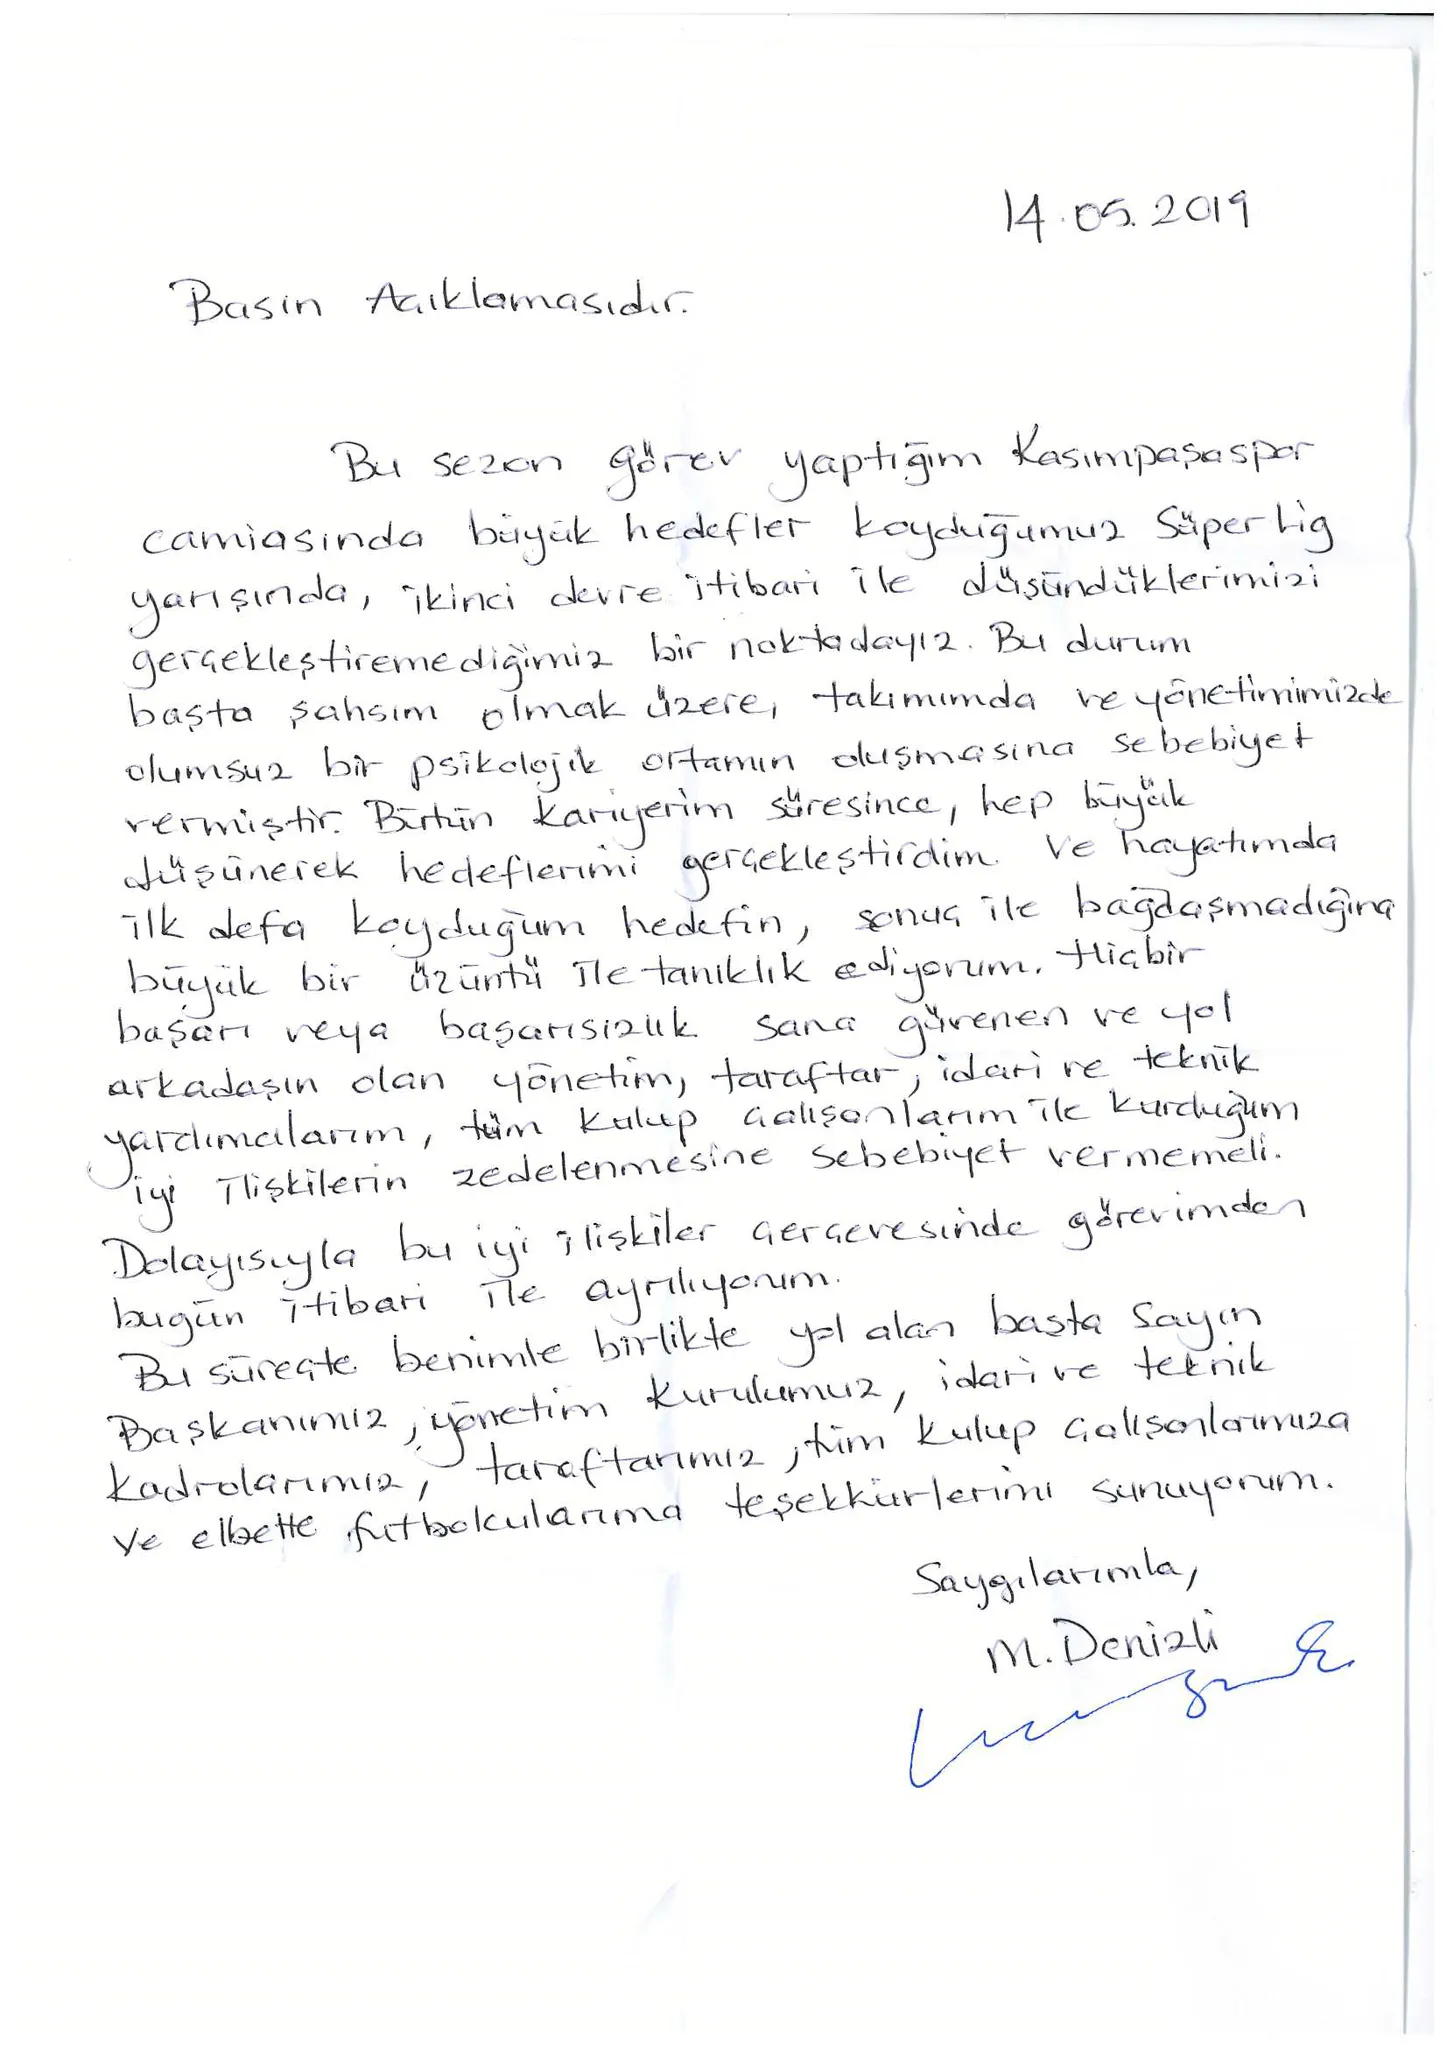 14.05.2019
Basın Açıklamasıdır.
Bu sezon görev yaptığım Kasımpaşaspor
camiasında büyük hedefler koyduğumuz Süper Lig
yarışında, ikinci devre itibari ile düşündüklerimizi
gerçekleştiremediğimiz bir noktadayız. Bu durum
başta şahsım olmak üzere, takımımda ve yönetimimizde
olumsuz bir psikolojik ortamın oluşmasına sebebiyet
vermiştir. Bütün kariyerim süresince, hep büyük
düşünerek hedeflerimi gerçekleştirdim. Ve hayatımda
ilk defa koyduğum hedefin, sonuç ile bağdaşmadığına
büyük bir üzüntü ile tanıklık ediyorum. Hiçbir
başarı veya başarısızlık sana güvenen ve yol
arkadaşın olan yönetim, taraftar, idari ve teknik
yardımcılarım, tüm kulup çalışanlarım ile kurduğum
iyi ilişkilerin zedelenmesine sebebiyet vermemeli.
Dolayısıyla bu iyi ilişkiler çerçevesinde görevimden
bugün itibari ile ayrılıyorum.
Bu süreçte benimle birlikte yol alan başta Sayın
Başkanımız, yönetim kurulumuz, idari ve teknik
kadrolarımız, taraftarımız, tüm kulup çalışanlarımıza
ve elbette futbolcularıma teşekkürlerimi sunuyorum.
Saygılarımla,
M. Denizli